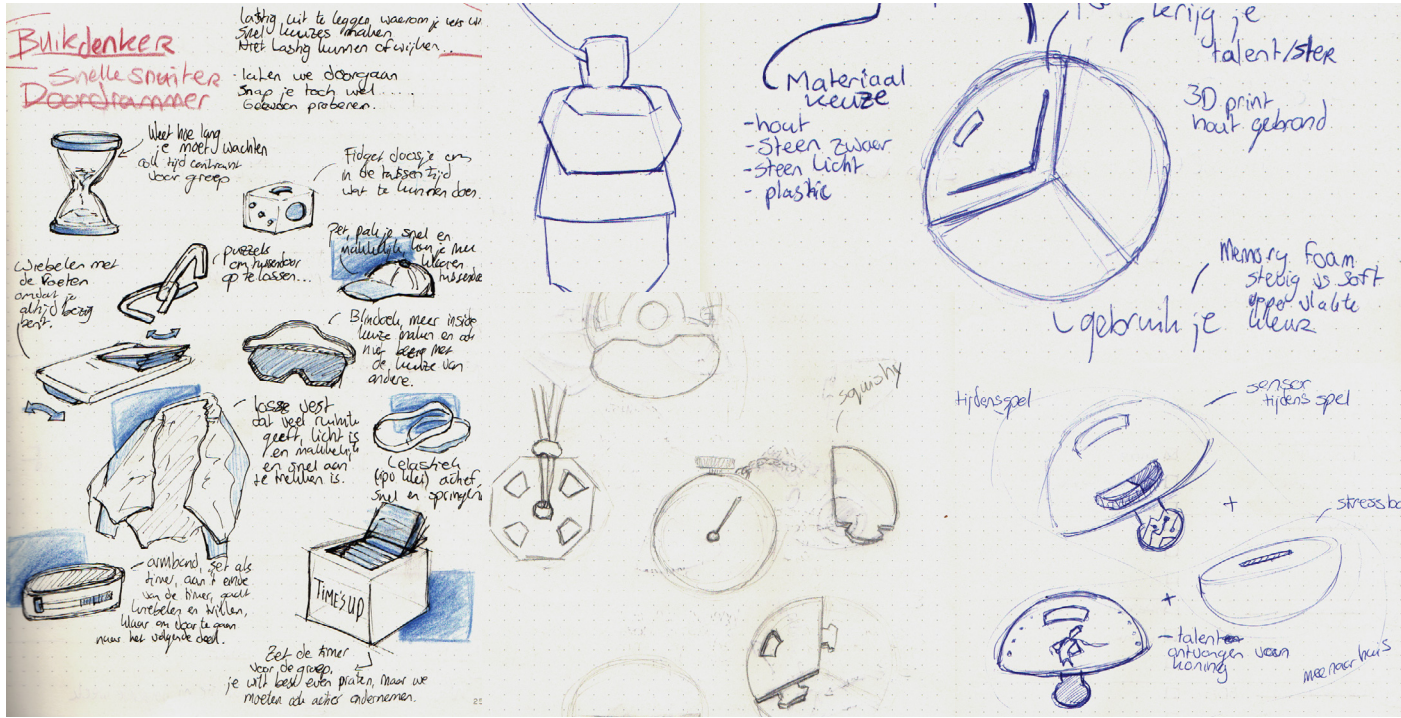 Buikdenker
Snelle snuiter
Doordrammer
lastig uit te leggen, waarom je iets
snel keuzes maken
Niet lastig kunnen afwijken...
- laten we doorgaan
snap je toch wel.....
Gewoon proberen.
Weet hoe lang
je moet wachten
tijd
voor groep
Fidget doosje om
in de tussen tijd
wat te kunnen doen.
puzzels
om tussendoor
op te lossen...
Pet, pak je snel en
makkelijk, kan je mee
tussendoor
Wriebelen met
de voeten
omdat je
altijd bezig
bent.
Blindoek, meer inside
keuze maken en
niet bezig met
de keuze van
andere.
losse vest
dat veel ruimte
geeft, licht is
en makkelijk
en snel aan
te trekken is.
elastiek
(ipv klei) actief,
snel en
armband, zet als
timer, aan 't einde
van de timer, gaat
wriebelen en trillen,
klaar om door te gaan
naar het volgende deel.
TIME'S UP
Zet de timer
voor de groep,
je wilt best even praten, maar we
moeten ook actief ondernemen.
25
Materiaal
keuze
- hout
- Steen zwaar
- steen licht
- plastic
krijg je
talent/ster
3D print
hout gebrand
Memory Foam
stevig vs soft
opper vlakte
kleur
gebruik je
squishy
tijdens spel
sensor
tijdens spel
+
stressba
+
- talent
ontvangen van
koning
mee naar huis